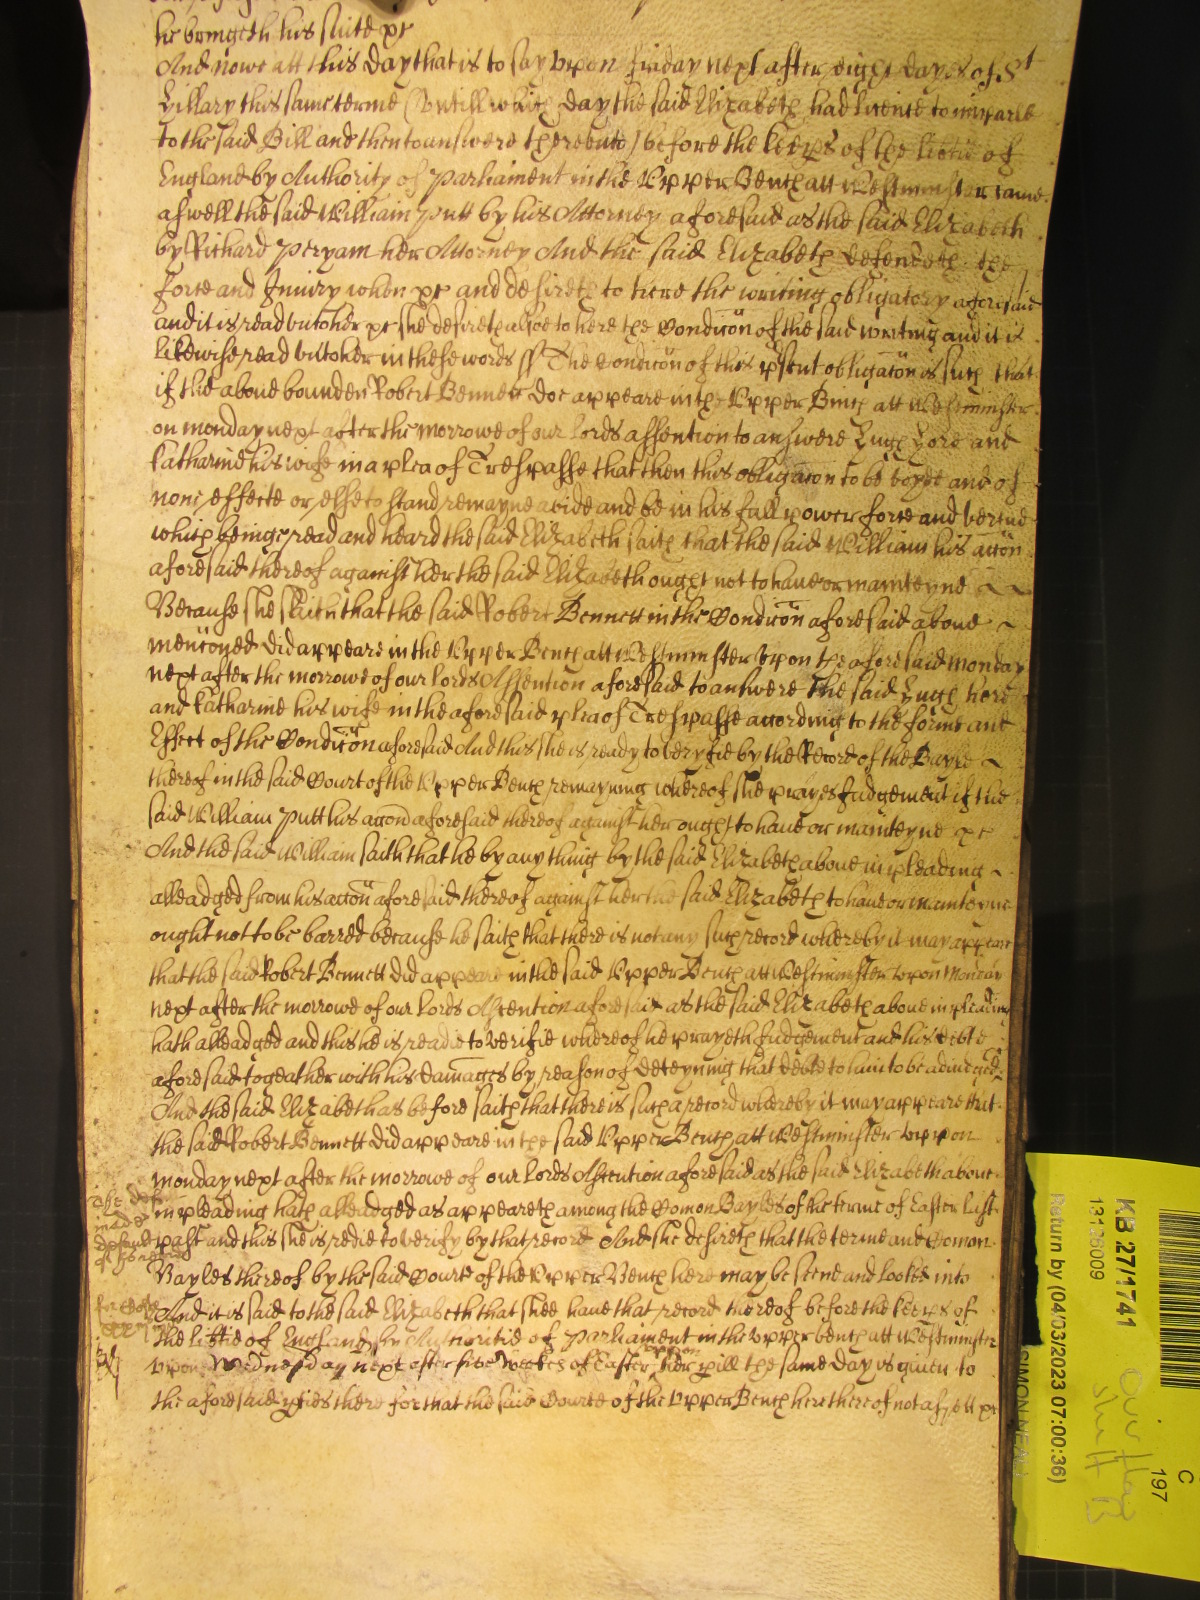 he bringeth his suite &c
And nowe att this day that is to say vpon friday next after eight dayes of St
Hillary this same terme (vntill which day the said Elizabeth had licence to imparle
to the said Bill and then to answere therevnto) before the keeps of the libtie of
England by Authority of Parliament in the Vpper Bench att Westminster came
aswell the said William Putt by his Attorney aforesaid as the said Elizabeth
by Richard Peryam her Attorney And the said Elizabeth defendeth the
force and Iniury when &c and desireth to heere the writing obligatory aforesaid
and it is read vnto her &c she desireth alsoe to here the Condicõn of the said writing and it is
likewise read vnto her in these words ss The Condicõn of this psent obligacõn is such that
if the aboue bounden Robert Bennett doe appeare in the Vpper Bench att Westminster
on monday next after the morrowe of our Lords Assention to answere Hugh Hore and
Katharine his wife in a plea of Trespasse that then this obligacon to be voyde and of
none effecte or else to stand remayne abide and be in his full power force and vertue
which beinge read and heard the said Elizabeth saith that the said William his accõn
aforesaid thereof against her the said Elizabeth ought not to haue or mainteyne
Because she saith that the said Robert Bennett in the Condicõn aforesaid aboue
mencõned did appeare in the Vpper Bench att Westminster vpon the aforesaid monday
next after the morrowe of our Lords Assention aforesaid to answere the said Hugh Hore
and Katharine his wife in the aforesaid plea of Trespasse according to the forme and
Effect of the Condicõn aforesaid And this she is ready to veryfie by the Record of the Bayle
thereof in the said Court of the Vpper Bench remayning whereof she prayes Iudgement if the
said William Putt his accon aforesaid thereof against her ought to haue or mainteyne &c
And the said William saith that he by any thing by the said Elizabeth aboue in pleading
alleadged from his accõn aforesaid thereof against her the said Elizabeth to haue or mainteyne
ought not to be barred because he saith that there is not any such record whereby it may appeare
that the said Robert Bennett did appeare in the said Vpper Bench att Westminster vpon Monday
next after the morrowe of our Lords Assention aforesaid as the said Elizabeth aboue in pleading
hath alleadged and this he is readie to verifie whereof he prayeth Iudgement and his debte
aforesaid togeather with his damages by reason of deteyning that debte to him to be adiudged &c
And the said Elizabeth as before saith that there is such a record whereby it may appeare that
the said Robert Bennett did appeare in the said Vpper Bench att Westminster vppon
monday next after the morrowe of our Lords Assention aforesaid as the said Elizabeth aboue
in pleading hath alleadged as appeareth among the Comon Bayles of the terme of Easter last
past and this she is redie to verify by that record And she desireth that the terme and Comon
Bayles thereof by the said Courte of the Vpper Bench here may be seene and looked into
And it is said to the said Elizabeth that shee haue that record thereof before the keeps of
the libtie of England by Authoritie of Parliament in the vpper bench att Westminster
vpon Wednesday next after five weekes of Easter the same day is giuen to
the aforesaid pties there for that the said Courte of the Vpper Bench here thereof not as yett &c
KB 27/1741
13126009
Return by (04/03/2023 07:00:36)
SIMON NEAL
C
197